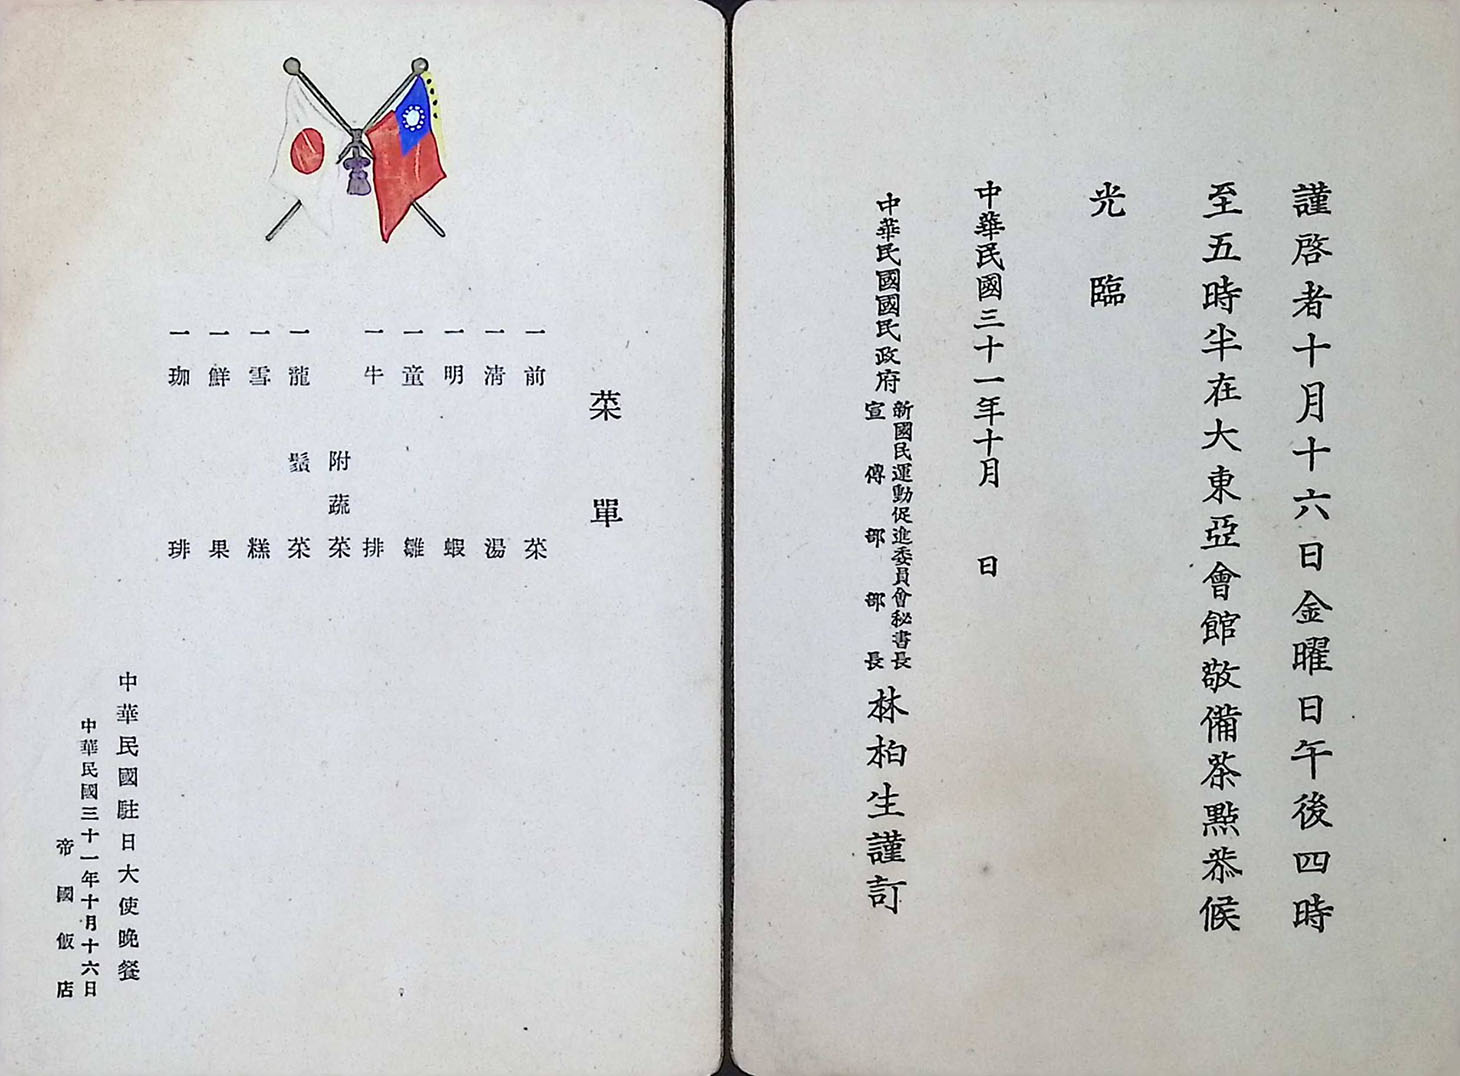 謹啓者十月十六日金曜日午後四時
至五時半在大東亞會館敬備茶點恭候
光臨
中華民國三十一年十月　日
中華民國國民政府
新國民運動促進委員會秘書長
宣傳部部長
林柏生謹訂
菜單
一前菜
一清湯
一明蝦
一童雛
一牛排
附蔬菜
一龍鬚菜
一雪糕
一鮮果
一珈琲
中華民國駐日大使晚餐
中華民國三十一年十月十六日
帝國飯店